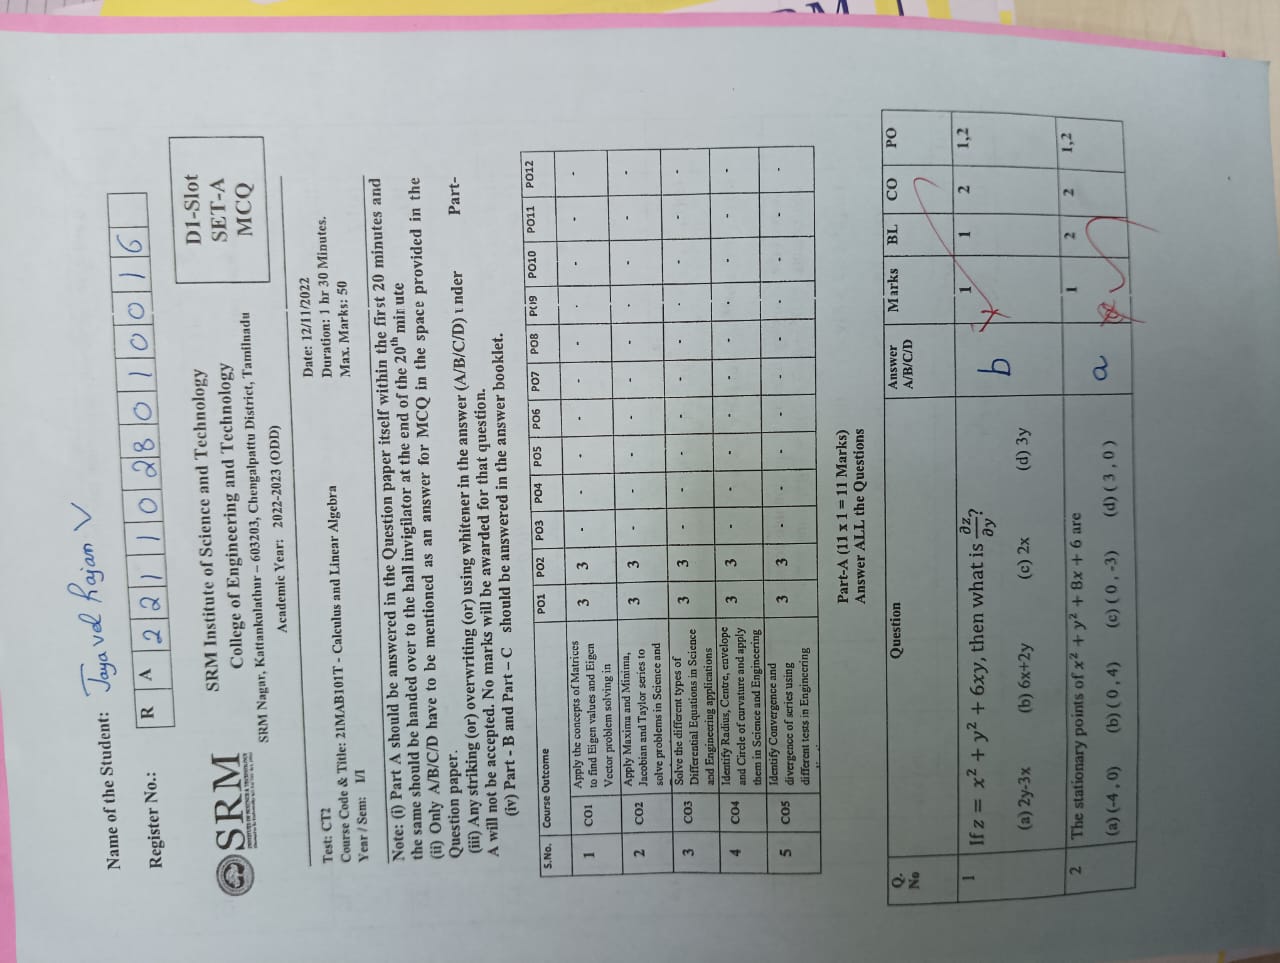 Name of the Student: Jayavel Rajan V
Register No.: R A 2 2 1 1 0 2 8 0 1 0 0 1 6
SRM
SRM Institute of Science and Technology
College of Engineering and Technology
SRM Nagar, Kattankulathur – 603203, Chengalpattu District, Tamilnadu
Academic Year: 2022-2023 (ODD)
D1-Slot
SET-A
MCQ
Test: CT2 Date: 12/11/2022
Course Code & Title: 21MAB101T - Calculus and Linear Algebra Duration: 1 hr 30 Minutes.
Year / Sem: I/I Max. Marks: 50
Note: (i) Part A should be answered in the Question paper itself within the first 20 minutes and
the same should be handed over to the hall invigilator at the end of the 20th minute
(ii) Only A/B/C/D have to be mentioned as an answer for MCQ in the space provided in the
Question paper.
(iii) Any striking (or) overwriting (or) using whitener in the answer (A/B/C/D) under Part-
A will not be accepted. No marks will be awarded for that question.
(iv) Part - B and Part – C should be answered in the answer booklet.
S.No. Course Outcome PO1 PO2 PO3 PO4 PO5 PO6 PO7 PO8 PO9 PO10 PO11 PO12
1 CO1 Apply the concepts of Matrices
to find Eigen values and Eigen
Vector problem solving in
3 3 - - - - - - - - - -
2 CO2 Apply Maxima and Minima,
Jacobian and Taylor series to
solve problems in Science and
3 3 - - - - - - - - - -
3 CO3 Solve the different types of
Differential Equations in Science
and Engineering applications
3 3 - - - - - - - - - -
4 CO4 Identify Radius, Centre, envelope
and Circle of curvature and apply
them in Science and Engineering
3 3 - - - - - - - - - -
5 CO5 Identify Convergence and
divergence of series using
different tests in Engineering
3 3 - - - - - - - - - -
Part-A (11 x 1 = 11 Marks)
Answer ALL the Questions
Q. No Question Answer A/B/C/D Marks BL CO PO
1 If z = x² + y² + 6xy, then what is ∂z/∂y? b 1 1 2 1,2
(a) 2y-3x (b) 6x+2y (c) 2x (d) 3y
2 The stationary points of x² + y² + 8x + 6 are a 1 2 2 1,2
(a) (-4 , 0) (b) ( 0 , 4) (c) ( 0 , -3) (d) ( 3 , 0 )